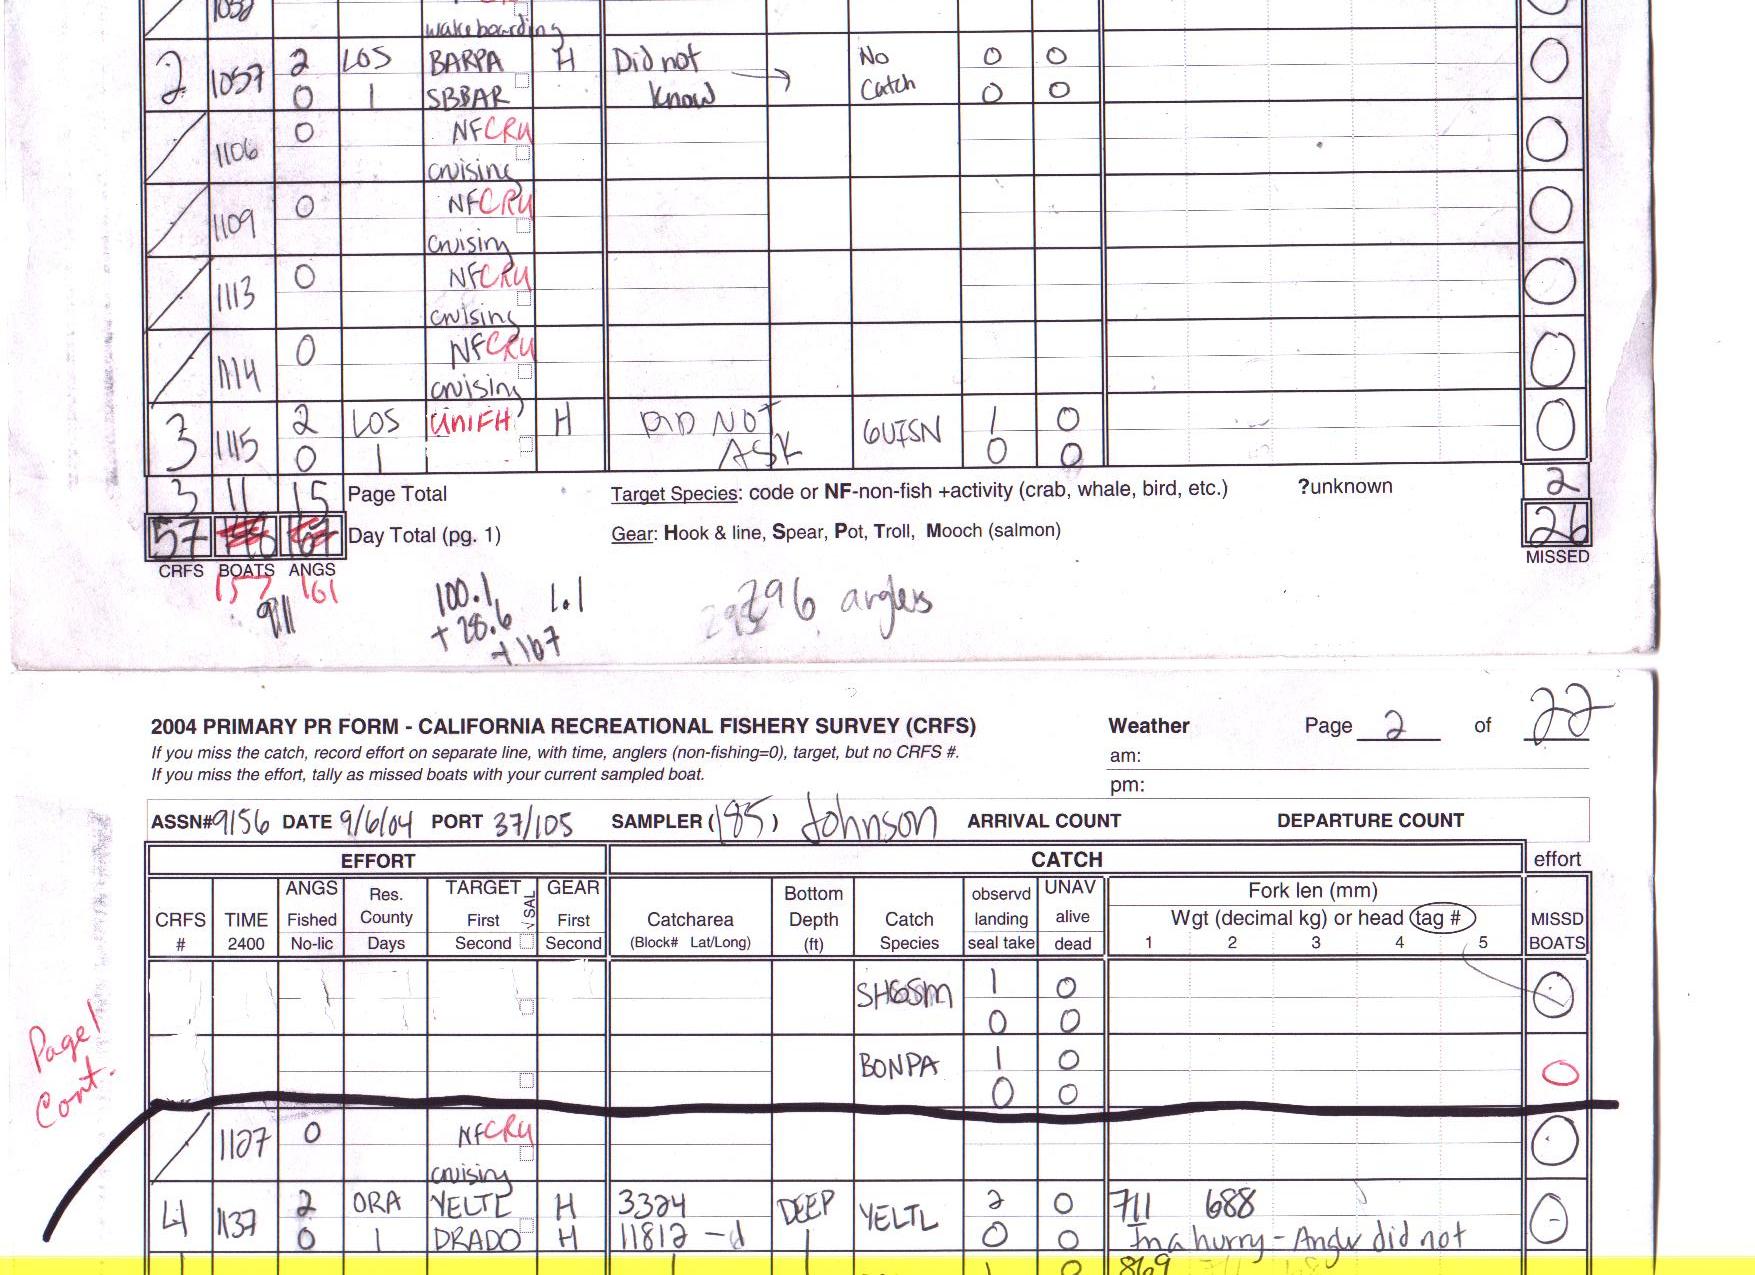 1058
wakeboarding
2 1057 2 LOS BARPA H Did not No 0 0 0
0 1 SBBAR know Catch 0 0
1106 0 NFCRU 0
cruising
1109 0 NFCRU 0
cruising
1113 0 NFCRU 0
cruising
1114 0 NFCRU 0
cruising
3 1115 2 LOS UNIFH H DID NOT GUISN 1 0 0
0 1 ASK 0 0
3 11 15 Page Total Target Species: code or NF-non-fish +activity (crab, whale, bird, etc.) ?unknown 2
57 Day Total (pg. 1) Gear: Hook & line, Spear, Pot, Troll, Mooch (salmon) 26
CRFS BOATS ANGS MISSED
157 161
911 100.1 1.1 296 anglers
+ 28.6
+ 167
2004 PRIMARY PR FORM - CALIFORNIA RECREATIONAL FISHERY SURVEY (CRFS) Weather Page 2 of 22
If you miss the catch, record effort on separate line, with time, anglers (non-fishing=0), target, but no CRFS #. am:
If you miss the effort, tally as missed boats with your current sampled boat. pm:
ASSN#9156 DATE 9/6/04 PORT 37/105 SAMPLER (185) Johnson ARRIVAL COUNT DEPARTURE COUNT
EFFORT CATCH effort
ANGS Res. TARGET √ SAL GEAR Bottom observd UNAV Fork len (mm)
CRFS TIME Fished County First First Catcharea Depth Catch landing alive Wgt (decimal kg) or head tag # MISSD
# 2400 No-lic Days Second Second (Block# Lat/Long) (ft) Species seal take dead 1 2 3 4 5 BOATS
SHGSM 1 0 0
0 0
Page 1
Cont.
BONPA 1 0 0
0 0
1127 0 NFCRU 0
cruising
4 1137 2 ORA YELTL H 3324 DEEP YELTL 2 0 711 688 0
0 1 DRADO H 11812 -d 0 0 In a hurry - Angler did not
1 0 869